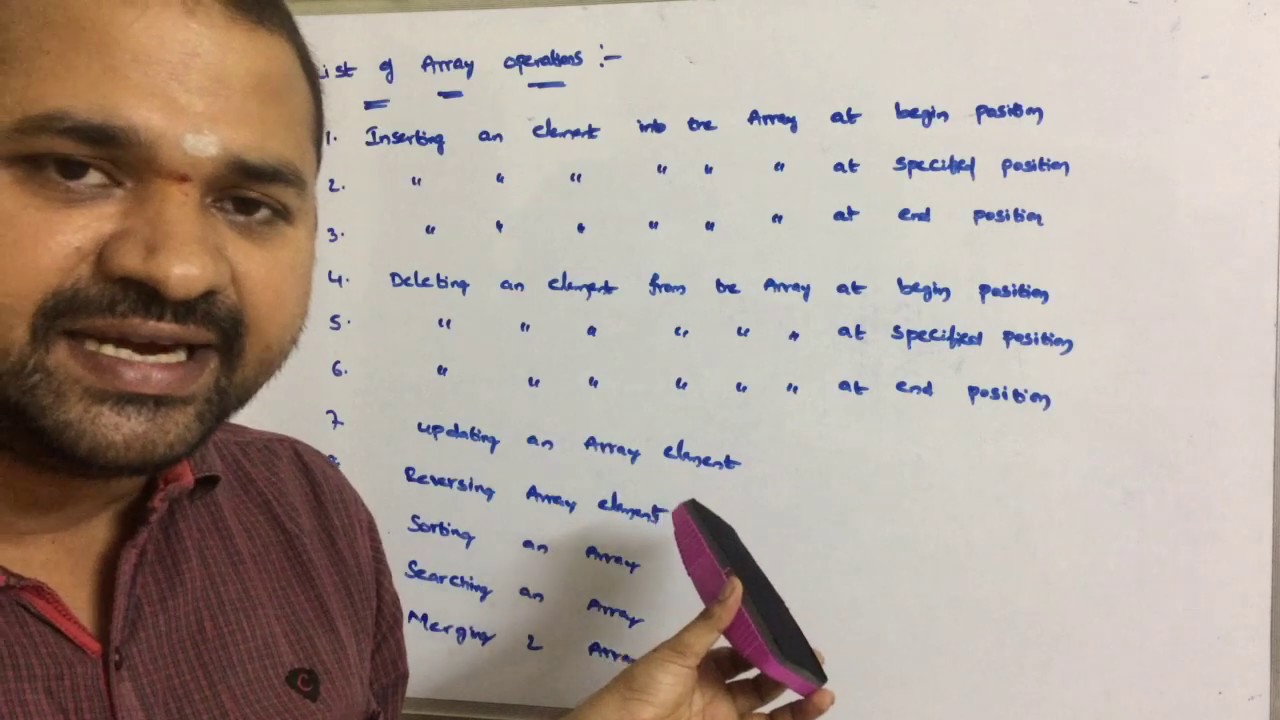 ist of Array operations :-
1. Inserting an element into the Array at begin position
2. " " " " " " at specified position
3. " " " " " " at end position
4. Deleting an element from the Array at begin position
5. " " " " " " at specified position
6. " " " " " " at end position
7 updating an Array element
Reversing Array element
Sorting an Array
Searching an Array
Merging 2 Array
C